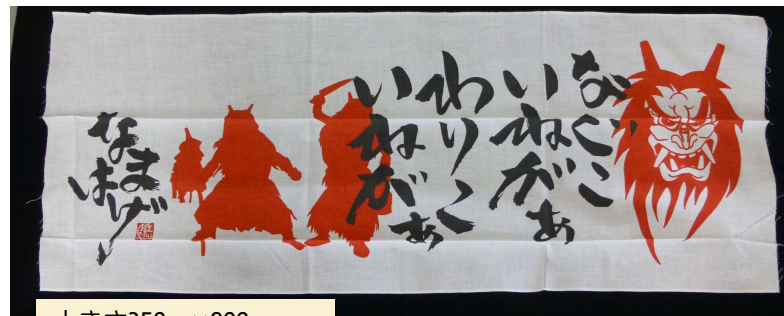 なぐこ
いねがぁ
わりこ
いねがぁ
なまはげ